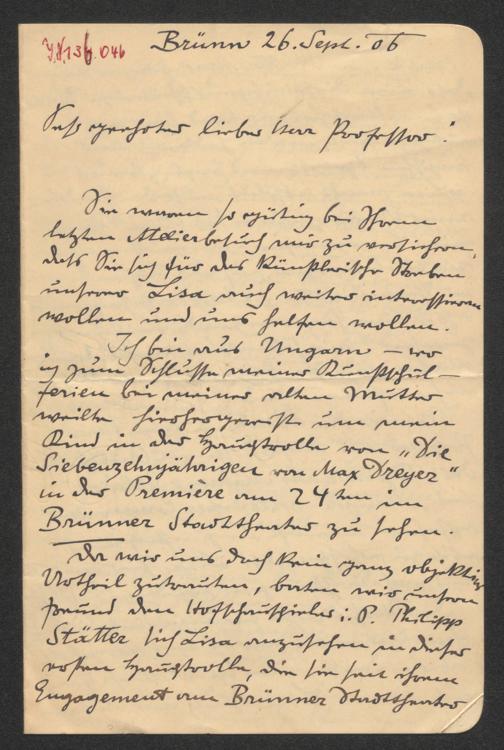 J.N. 136.046
Brünn 26. Sept. 06
Sehr geehrter lieber Herr Professor!
Sie waren so gütig bei Ihrem
letzten Atelierbesuch mir zu versichern,
daß Sie sich für das künstlerische Streben
unserer Lisa auch weiter interessieren
wollen und uns helfen wollen.
Ich bin aus Ungarn – wo
ich zum Schlusse meiner Kunstschul-
ferien bei meiner alten Mutter
weilte hierhergereist um mein
Kind in der Hauptrolle von „Die
Siebenzehnjährigen von Max Dreyer"
in der Première am 24ten im
Brünner Stadttheater zu sehen.
Da wir uns doch kein ganz objektives
Urtheil zutrauten, baten wir unsern
Freund den Hofschauspieler i. P. Philipp
Stätter sich Lisa anzusehen in dieser
ersten Hauptrolle, die sie seit ihrem
Engagement am Brünner Stadttheater